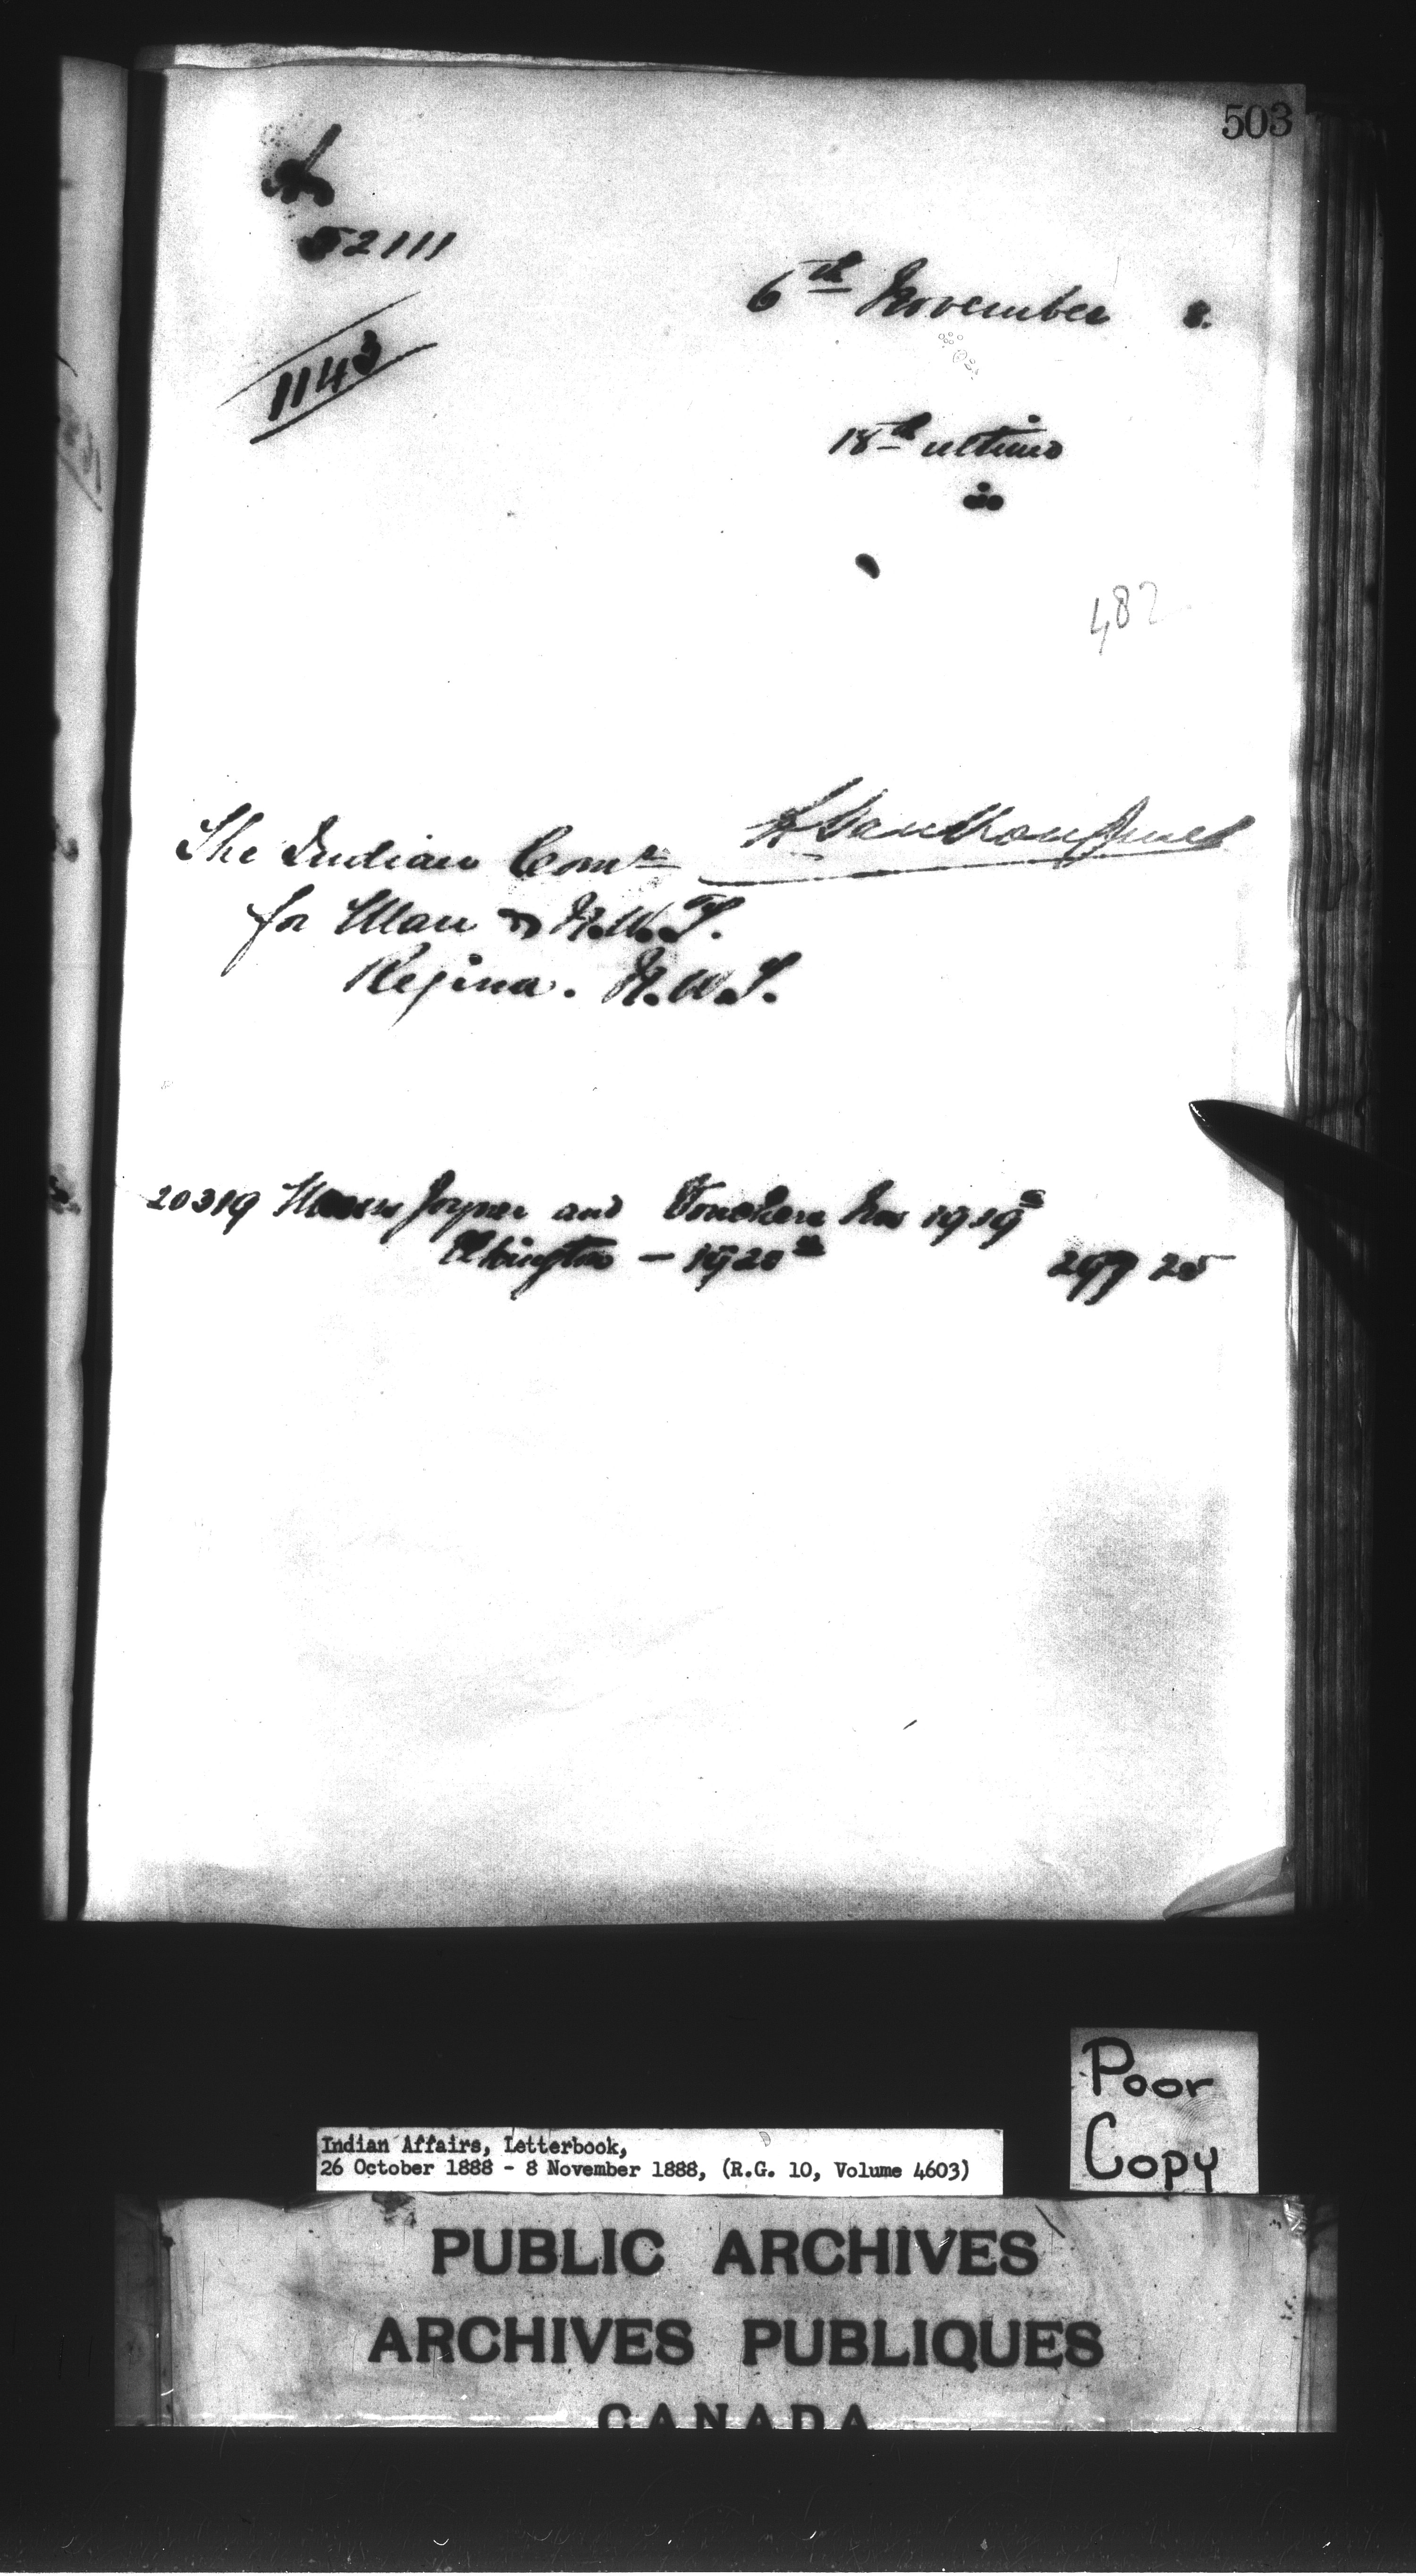 503
52111
6th November 8.
1143
18th ultimo
482
The Indian Comr
for Man & N.W.T.
Regina. N.W.T.
20319 Messrs Joyner and Nov 19 19th
Elkington — 1920th
297 25
Poor
Copy
Indian Affairs, Letterbook,
26 October 1888 - 8 November 1888, (R.G. 10, Volume 4603)
PUBLIC ARCHIVES
ARCHIVES PUBLIQUES
CANADA